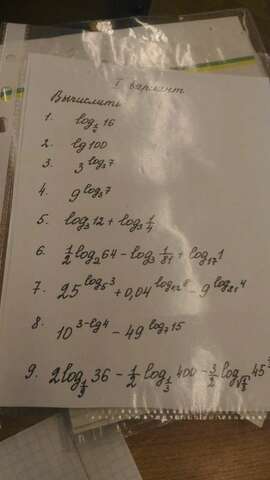 I вариант
Вычислить
1. log_{1/2} 16
2. lg 100
3. 3^{log_3 7}
4. 9^{log_3 7}
5. log_3 12 + log_3 1/4
6. 1/2 log_2 64 - log_3 1/81 + log_{17} 1
7. 25^{log_5 3} + 0,04 -
8. 10^{3-lg4} - 49^{log_7 15}
9. 2log_{1/3} 36 - 1/2 log_{1/3} 400 - 3/2